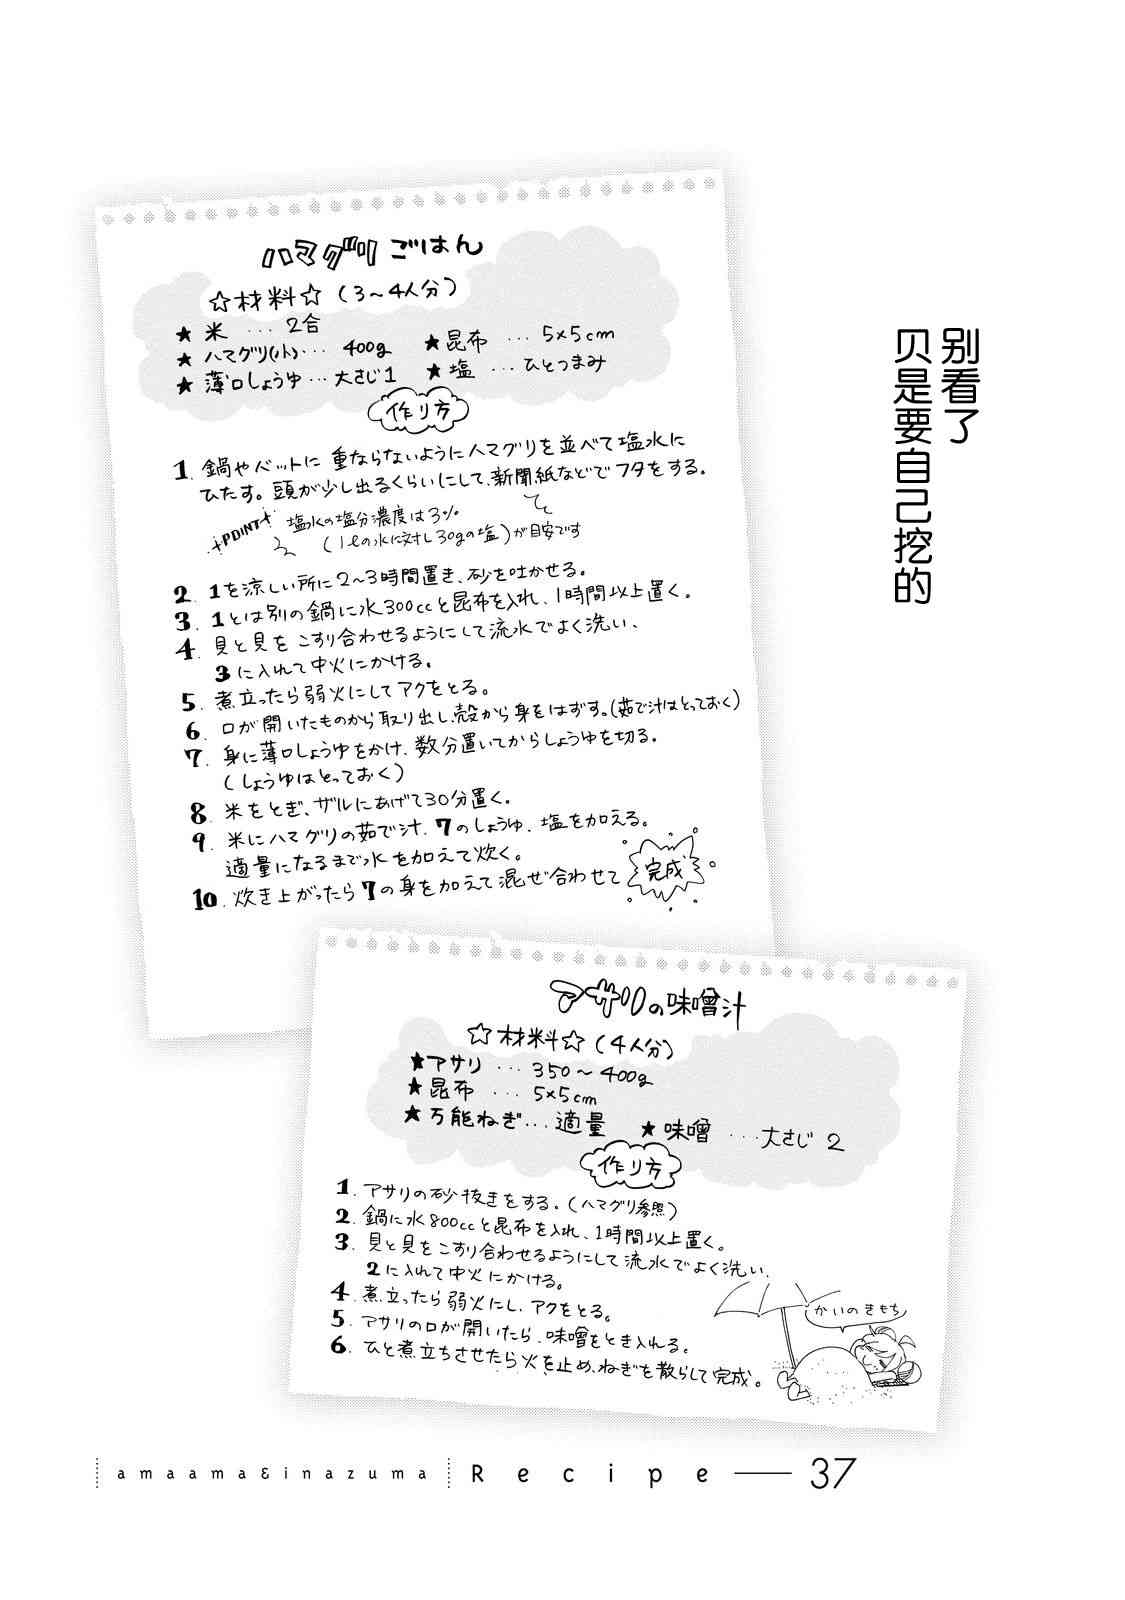 别看了
贝是要自己挖的
ハマグリごはん
☆材料☆(3～4人分)
★米…2合
★ハマグリ(小)…400g
★薄口しょうゆ…大さじ1
★昆布…5×5cm
★塩…ひとつまみ
作り方
1.鍋やバットに重ならないようにハマグリを並べて塩水に
ひたす。頭が少し出るくらいにして、新聞紙などでフタをする。
POINT
塩水の塩分濃度は3%
(1ℓの水に対し30gの塩)が目安です
2.1を涼しい所に2～3時間置き、砂を吐かせる。
3.1とは別の鍋に水300ccと昆布を入れ、1時間以上置く。
4.貝と貝をこすり合わせるようにして流水でよく洗い、
3に入れて中火にかける。
5.煮立ったら弱火にしてアクをとる。
6.口が開いたものから取り出し、殻から身をはずす。(茹で汁はとっておく)
7.身に薄口しょうゆをかけ、数分置いてからしょうゆを切る。
(しょうゆはとっておく)
8.米をとぎ、ザルにあげて30分置く。
9.米にハマグリの茹で汁、7のしょうゆ、塩を加える。
適量になるまで水を加えて炊く。
10.炊き上がったら7の身を加えて混ぜ合わせて
完成
アサリの味噌汁
☆材料☆(4人分)
★アサリ…350～400g
★昆布…5×5cm
★万能ねぎ…適量 ★味噌…大さじ2
作り方
1.アサリの砂抜きをする。(ハマグリ参照)
2.鍋に水800ccと昆布を入れ、1時間以上置く。
3.貝と貝をこすり合わせるようにして流水でよく洗い、
2に入れて中火にかける。
4.煮立ったら弱火にし、アクをとる。
5.アサリの口が開いたら、味噌をとき入れる。
6.ひと煮立ちさせたら火を止め、ねぎを散らして完成。
かいのきもち
amaama&inazuma Recipe 37